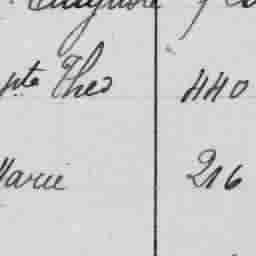 pte Theo 440
Marie 216